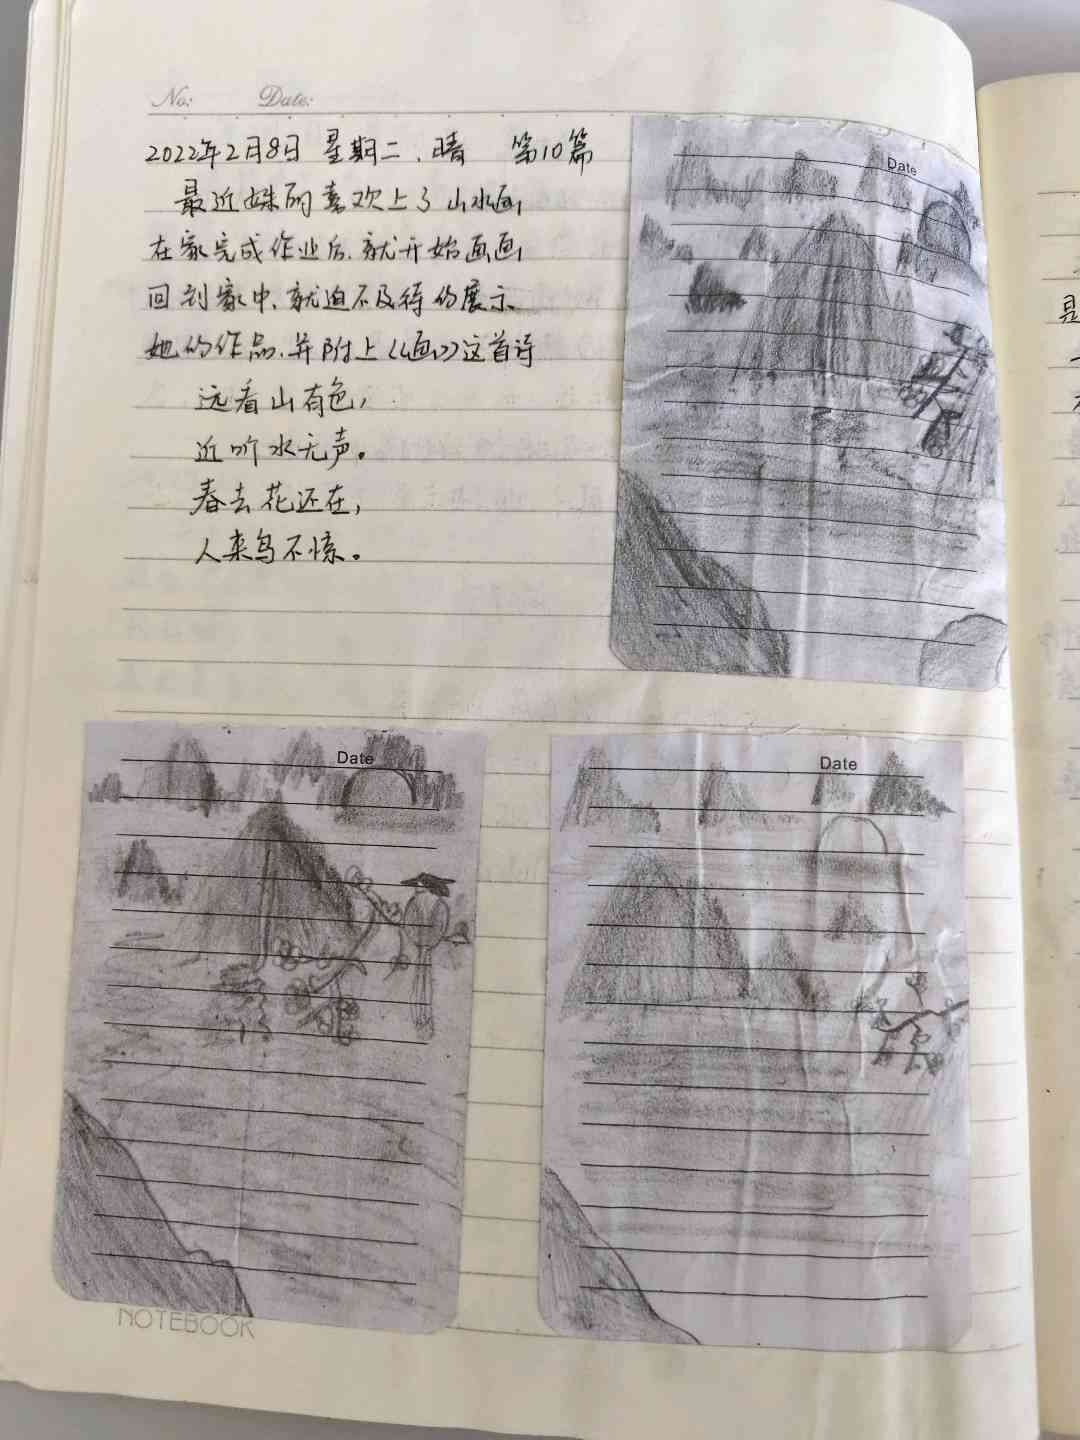 No:  Date:
2022年2月8日 星期二、晴 第10篇
最近姝丽喜欢上了山水画,
在家完成作业后、就开始画画
回到家中、就迫不及待的展示
她的作品、并附上《画》这首诗
远看山有色,
近听水无声。
春去花还在,
人来鸟不惊。
Date
Date
Date
NOTEBOOK